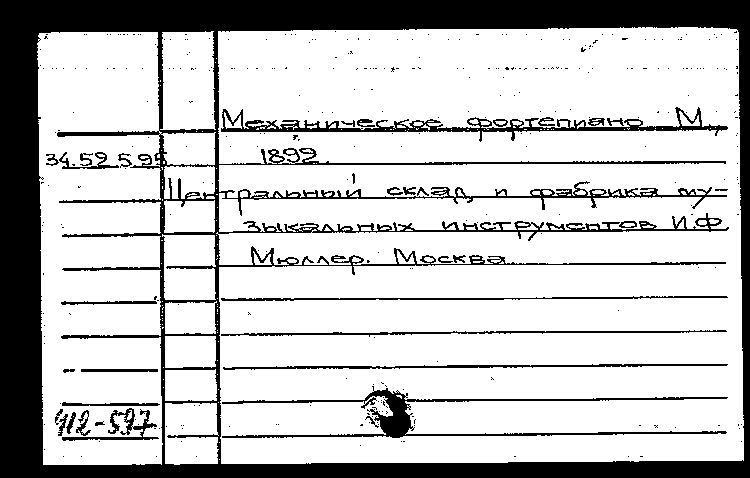 Механическое фортепиано М.,
34.52 5.95 1892.
Центральный склад и фабрика му-
зыкальных инструментов И.Ф.
Мюллер. Москва.
412-597